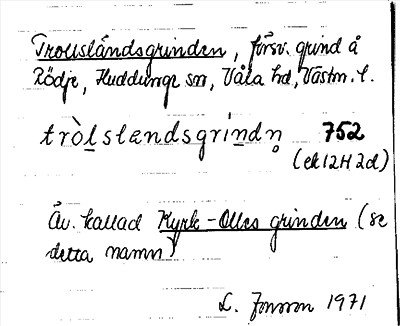 Trollsländsgrinden, försv. grind å
Rödje, Huddunge sn, Våla hd, Västm. l.
tròlslændsgrindn̥ 752
(ek 12H 2d)
Äv. kallad Kyrk-Olles grinden (se
detta namn)
L. Jonsson 1971